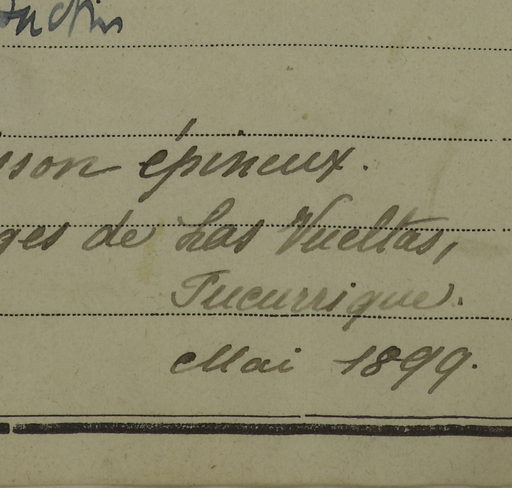 sson épineux.
ges de Las Vueltas,
Tucurrique.
Mai 1899.